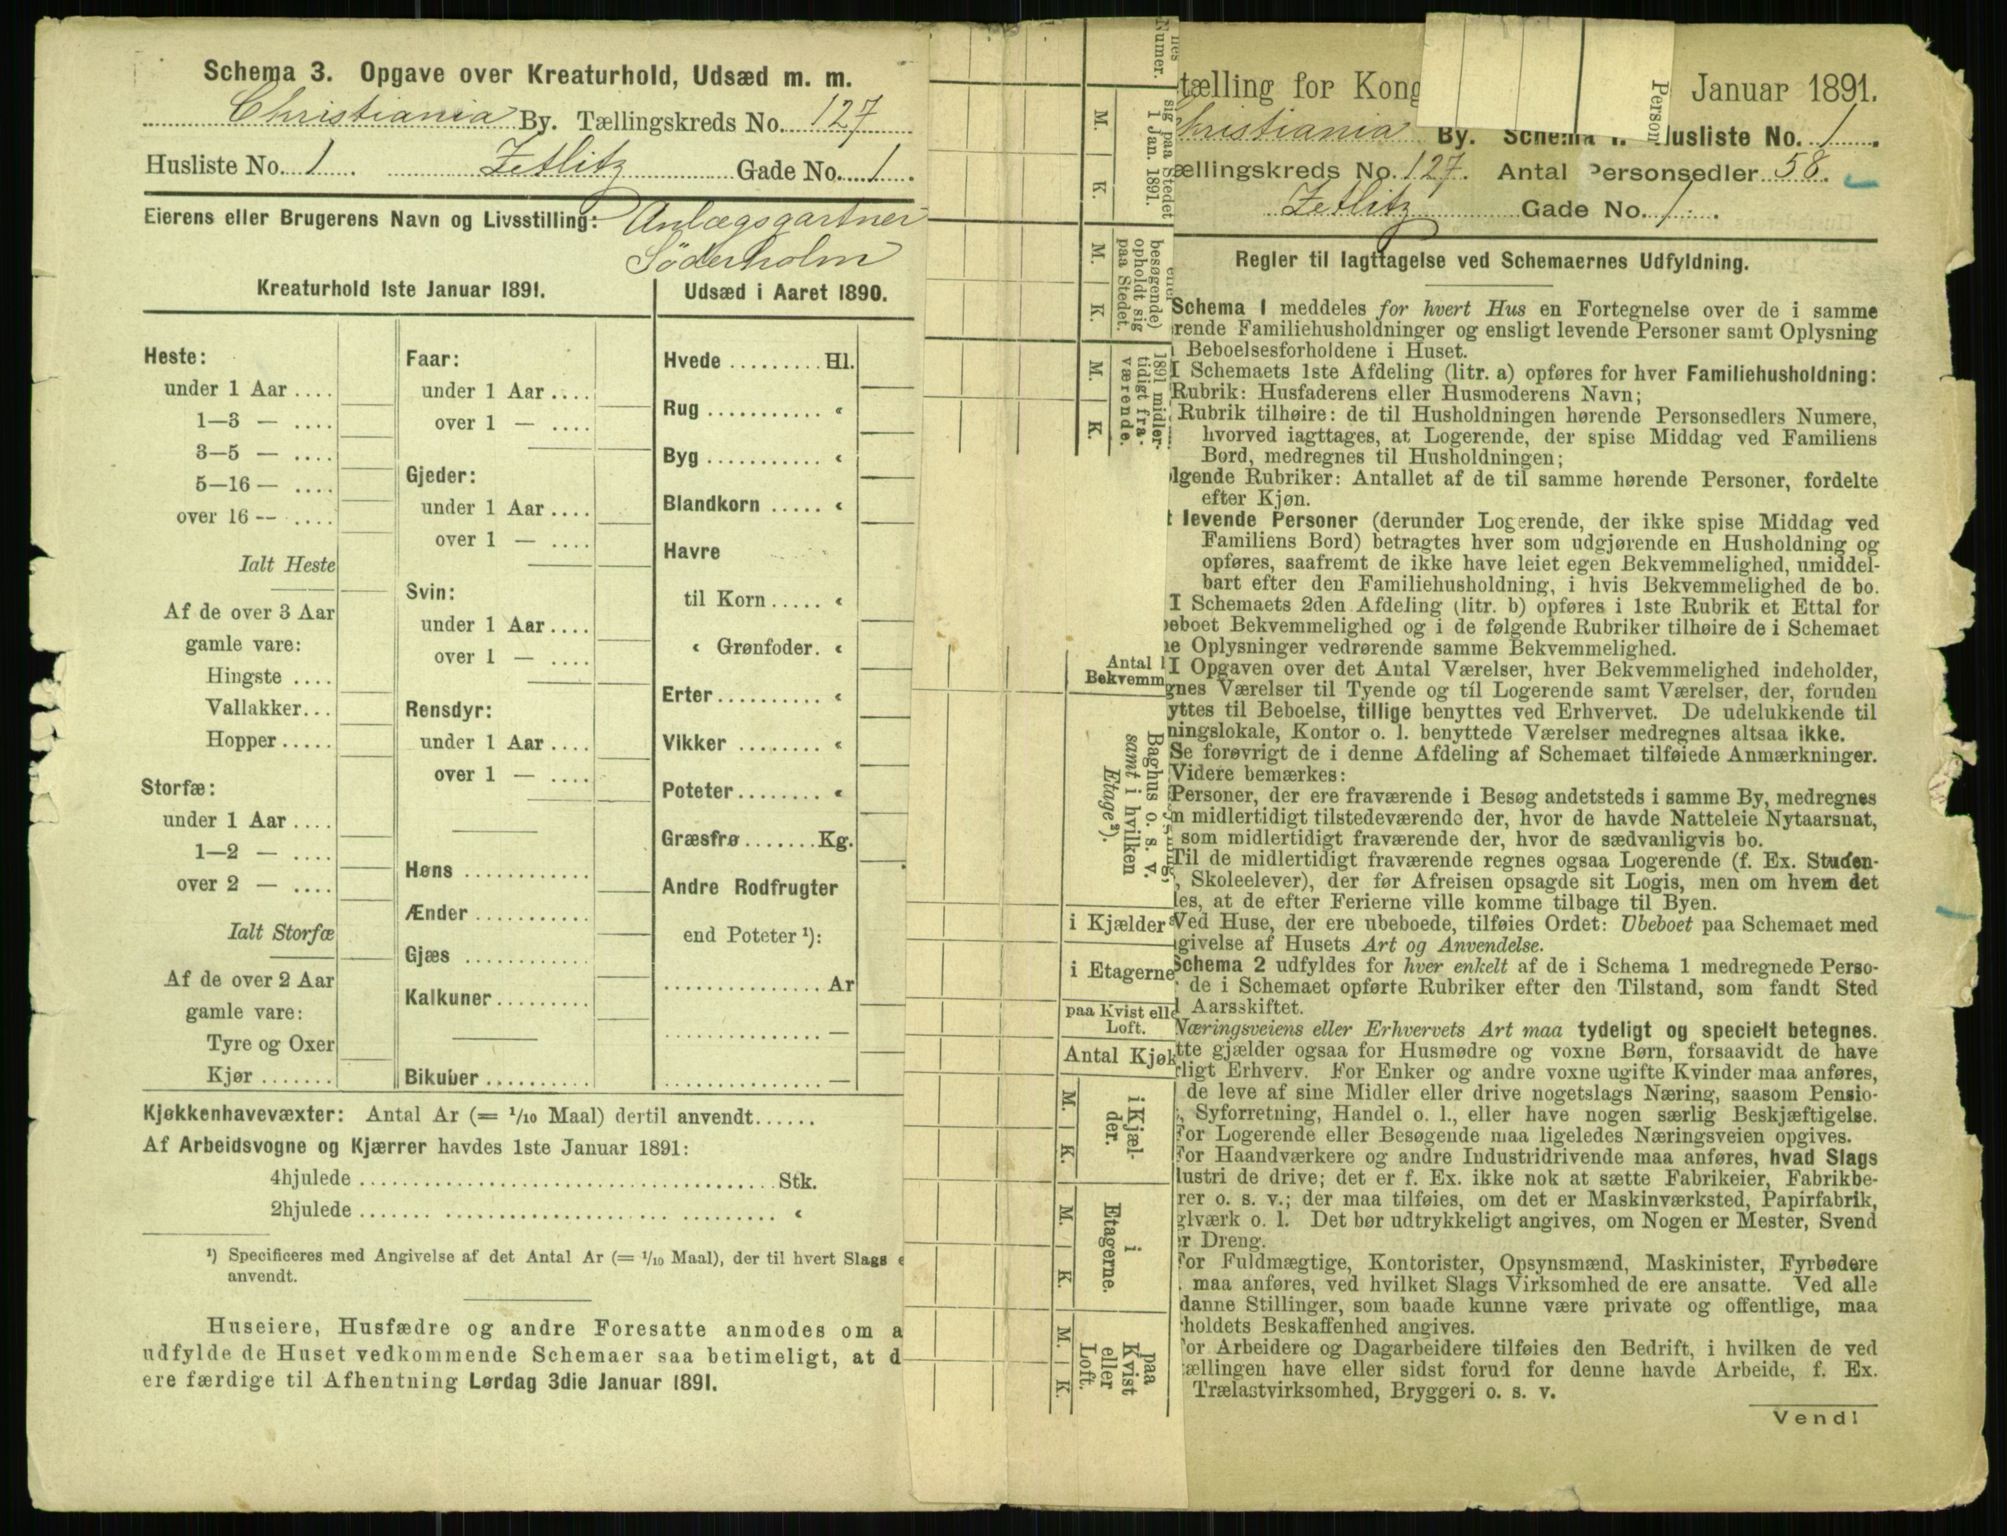 Schema 3. Opgave over Kreaturhold, Udsæd m. m.
Christiania By. Tællingskreds No. 127
Husliste No. 1 Zetlitz Gade No. 1.
Eierens eller Brugerens Navn og Livsstilling: Anlægsgartner
Söderholm
Kreaturhold 1ste Januar 1891.
Heste:
under 1 Aar ....
1—3 — ....
3—5 — ....
5—16 — ....
over 16 -- ....
Ialt Heste
Af de over 3 Aar
gamle vare:
Hingste ....
Vallakker...
Hopper.....
Storfæ:
under 1 Aar ....
1—2 — ....
over 2 — ....
Ialt Storfæ
Af de over 2 Aar
gamle vare:
Tyre og Oxer
Kjør .......
Faar:
under 1 Aar ....
over 1 — ....
Gjeder:
under 1 Aar ....
over 1 — ....
Svin:
under 1 Aar ....
over 1 — ....
Rensdyr:
under 1 Aar ....
over 1 — ....
Høns ............
Ænder ...........
Gjæs ............
Kalkuner.........
Bikuber ..........
Udsæd i Aaret 1890.
Hvede ......... Hl.
Rug ........... «
Byg ........... «
Blandkorn ..... «
Havre
til Korn ..... «
« Grønfoder. «
Erter.......... «
Vikker ........ «
Poteter........ «
Græsfrø....... Kg.
Andre Rodfrugter
end Poteter ¹):
............... Ar
............... —
............... —
Kjøkkenhavevæxter: Antal Ar (= 1/10 Maal) dertil anvendt......
Af Arbeidsvogne og Kjærrer havdes 1ste Januar 1891:
4hjulede ........................................ Stk.
2hjulede ........................................ «
¹) Specificeres med Angivelse af det Antal Ar (= 1/10 Maal), der til hvert Slags e
anvendt.
Huseiere, Husfædre og andre Foresatte anmodes om a
udfylde de Huset vedkommende Schemaer saa betimeligt, at d
ere færdige til Afhentning Lørdag 3die Januar 1891.
nes
Numer.
sig paa Stedet
1 Jan. 1891.
M.
K.
besøgende)
opholdt sig
paa Stedet.
M.
K.
1891 midler-
tidigt fra-
værende.
M.
K.
Antal
Bekvemm
Baghus o. s. v.
samt i hvilken
Etage²).
i Kjælder
i Etagerne
paa Kvist elle
Loft.
Antal Kjøk
i Kjæl-
der.
M.
K.
i
Etagerne.
M.
K.
paa
Kvist
eller
Loft.
M.
K.
Person
tælling for Kong Januar 1891.
Christiania By. Schema 1. Husliste No. 1.
ællingskreds No. 127. Antal Personsedler 58.
Zetlitz Gade No. 1.
Regler til Iagttagelse ved Schemaernes Udfyldning.
Schema 1 meddeles for hvert Hus en Fortegnelse over de i samme
rende Familiehusholdninger og ensligt levende Personer samt Oplysning
Beboelsesforholdene i Huset.
I Schemaets 1ste Afdeling (litr. a) opføres for hver Familiehusholdning:
Rubrik: Husfaderens eller Husmoderens Navn;
Rubrik tilhøire: de til Husholdningen hørende Personsedlers Numere,
hvorved iagttages, at Logerende, der spise Middag ved Familiens
Bord, medregnes til Husholdningen;
lgende Rubriker: Antallet af de til samme hørende Personer, fordelte
efter Kjøn.
t levende Personer (derunder Logerende, der ikke spise Middag ved
Familiens Bord) betragtes hver som udgjørende en Husholdning og
opføres, saafremt de ikke have leiet egen Bekvemmelighed, umiddel-
bart efter den Familiehusholdning, i hvis Bekvemmelighed de bo.
I Schemaets 2den Afdeling (litr. b) opføres i 1ste Rubrik et Ettal for
beboet Bekvemmelighed og i de følgende Rubriker tilhøire de i Schemaet
ne Oplysninger vedrørende samme Bekvemmelighed.
I Opgaven over det Antal Værelser, hver Bekvemmelighed indeholder,
gnes Værelser til Tyende og til Logerende samt Værelser, der, foruden
yttes til Beboelse, tillige benyttes ved Erhvervet. De udelukkende til
ningslokale, Kontor o. l. benyttede Værelser medregnes altsaa ikke.
Se forøvrigt de i denne Afdeling af Schemaet tilføiede Anmærkninger.
Videre bemærkes:
Personer, der ere fraværende i Besøg andetsteds i samme By, medregnes
m midlertidigt tilstedeværende der, hvor de havde Natteleie Nytaarsnat,
som midlertidigt fraværende der, hvor de sædvanligvis bo.
Til de midlertidigt fraværende regnes ogsaa Logerende (f. Ex. Studen-
, Skoleelever), der før Afreisen opsagde sit Logis, men om hvem det
les, at de efter Ferierne ville komme tilbage til Byen.
Ved Huse, der ere ubeboede, tilføies Ordet: Ubeboet paa Schemaet med
givelse af Husets Art og Anvendelse.
Schema 2 udfyldes for hver enkelt af de i Schema 1 medregnede Perso-
de i Schemaet opførte Rubriker efter den Tilstand, som fandt Sted
d Aarsskiftet.
Næringsveiens eller Erhvervets Art maa tydeligt og specielt betegnes.
tte gjælder ogsaa for Husmødre og voxne Børn, forsaavidt de have
rligt Erhverv. For Enker og andre voxne ugifte Kvinder maa anføres,
de leve af sine Midler eller drive nogetslags Næring, saasom Pensio-
, Syforretning, Handel o. l., eller have nogen særlig Beskjæftigelse.
For Logerende eller Besøgende maa ligeledes Næringsveien opgives.
For Haandværkere og andre Industridrivende maa anføres, hvad Slags
lustri de drive; det er f. Ex. ikke nok at sætte Fabrikeier, Fabrikbe-
rer o. s. v.; der maa tilføies, om det er Maskinværksted, Papirfabrik,
glværk o. l. Det bør udtrykkeligt angives, om Nogen er Mester, Svend
r Dreng.
For Fuldmægtige, Kontorister, Opsynsmænd, Maskinister, Fyrbødere
. maa anføres, ved hvilket Slags Virksomhed de ere ansatte. Ved alle
danne Stillinger, som baade kunne være private og offentlige, maa
rholdets Beskaffenhed angives.
For Arbeidere og Dagarbeidere tilføies den Bedrift, i hvilken de ved
tællingen have eller sidst forud for denne havde Arbeide, f. Ex.
Trælastvirksomhed, Bryggeri o. s. v.
Vend!